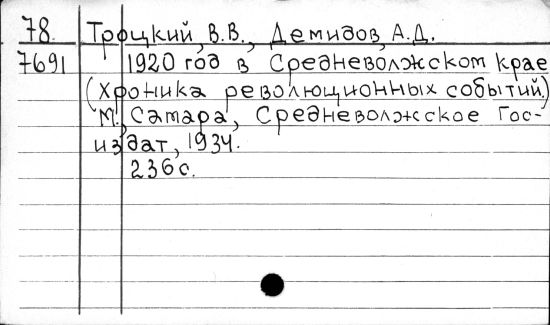 78. Троцкий, В.В., Демидов, А.Д.
7691 1920 год в Средневолжском крае
(хроника революционных событий.)
М., Самара, Средневолжское Гос-
издат, 1934.
236 с.